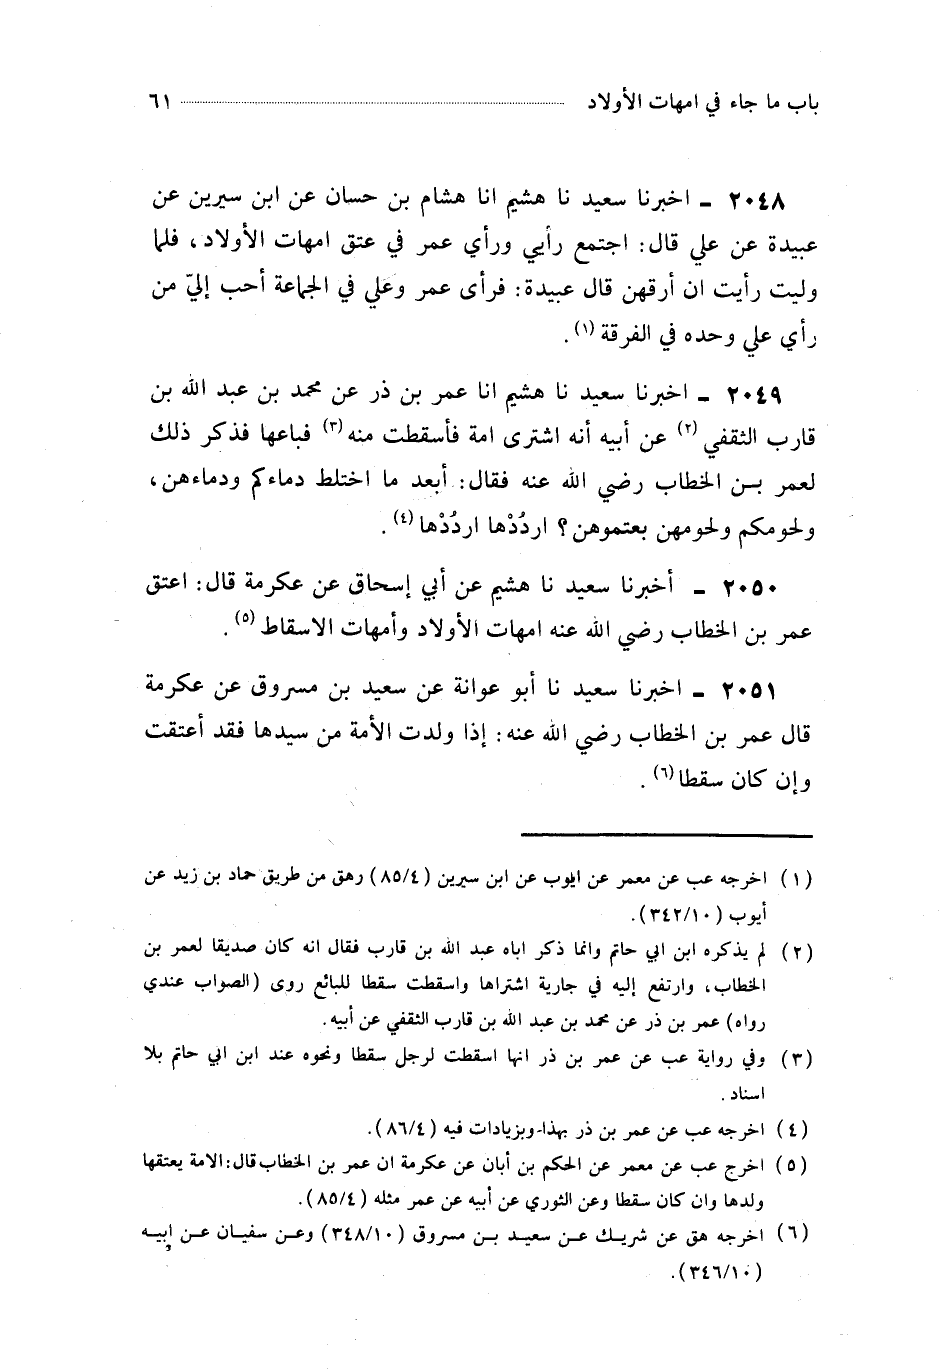 باب ما جاء في امهات الأولاد ٦١
٢٠٤٨ ـ اخبرنا سعيد نا هشيم انا هشام بن حسان عن ابن سيرين عن
عبيدة عن علي قال: اجتمع رأيي ورأي عمر في عتق امهات الأولاد، فلما
وليت رأيت ان أرقهن قال عبيدة: فرأى عمر وعلي في الجماعة أحب إليّ من
رأي علي وحده في الفرقة (١).
٢٠٤٩ ـ اخبرنا سعيد نا هشيم انا عمر بن ذر عن محمد بن عبد الله بن
قارب الثقفي (٢) عن أبيه أنه اشترى امة فأسقطت منه (٣) فباعها فذكر ذلك
لعمر بن الخطاب رضي الله عنه فقال: أبعد ما اختلط دماءكم ودماءهن،
ولحومكم ولحومهن بعتموهن؟ اردُدْها اردُدْها (٤).
٢٠٥٠ ـ أخبرنا سعيد نا هشيم عن أبي إسحاق عن عكرمة قال: اعتق
عمر بن الخطاب رضي الله عنه امهات الأولاد وأمهات الاسقاط (٥).
٢٠٥١ ـ اخبرنا سعيد نا أبو عوانة عن سعيد بن مسروق عن عكرمة
قال عمر بن الخطاب رضي الله عنه: إذا ولدت الأمة من سيدها فقد أعتقت
وإن كان سقطا (٦).
(١) اخرجه عب عن معمر عن ايوب عن ابن سيرين (٨٥/٤) رهق من طريق حماد بن زيد عن
أيوب (٣٤٢/١٠).
(٢) لم يذكره ابن ابي حاتم وانما ذكر اباه عبد الله بن قارب فقال انه كان صديقا لعمر بن
الخطاب، وارتفع إليه في جارية اشتراها واسقطت سقطا للبائع روى (الصواب عندي
رواه) عمر بن ذر عن محمد بن عبد الله بن قارب الثقفي عن أبيه.
(٣) وفي رواية عب عن عمر بن ذر انها اسقطت لرجل سقطا ونحوه عند ابن ابي حاتم بلا
اسناد.
(٤) اخرجه عب عن عمر بن ذر بهذا وبزيادات فيه (٨٦/٤).
(٥) اخرج عب عن معمر عن الحكم بن أبان عن عكرمة ان عمر بن الخطاب قال: الامة يعتقها
ولدها وان كان سقطا وعن الثوري عن أبيه عن عمر مثله (٨٥/٤).
(٦) اخرجه هق عن شريك عن سعيد بن مسروق (٣٤٨/١٠) وعن سفيان عن ابيه
(٣٤٦/١٠).